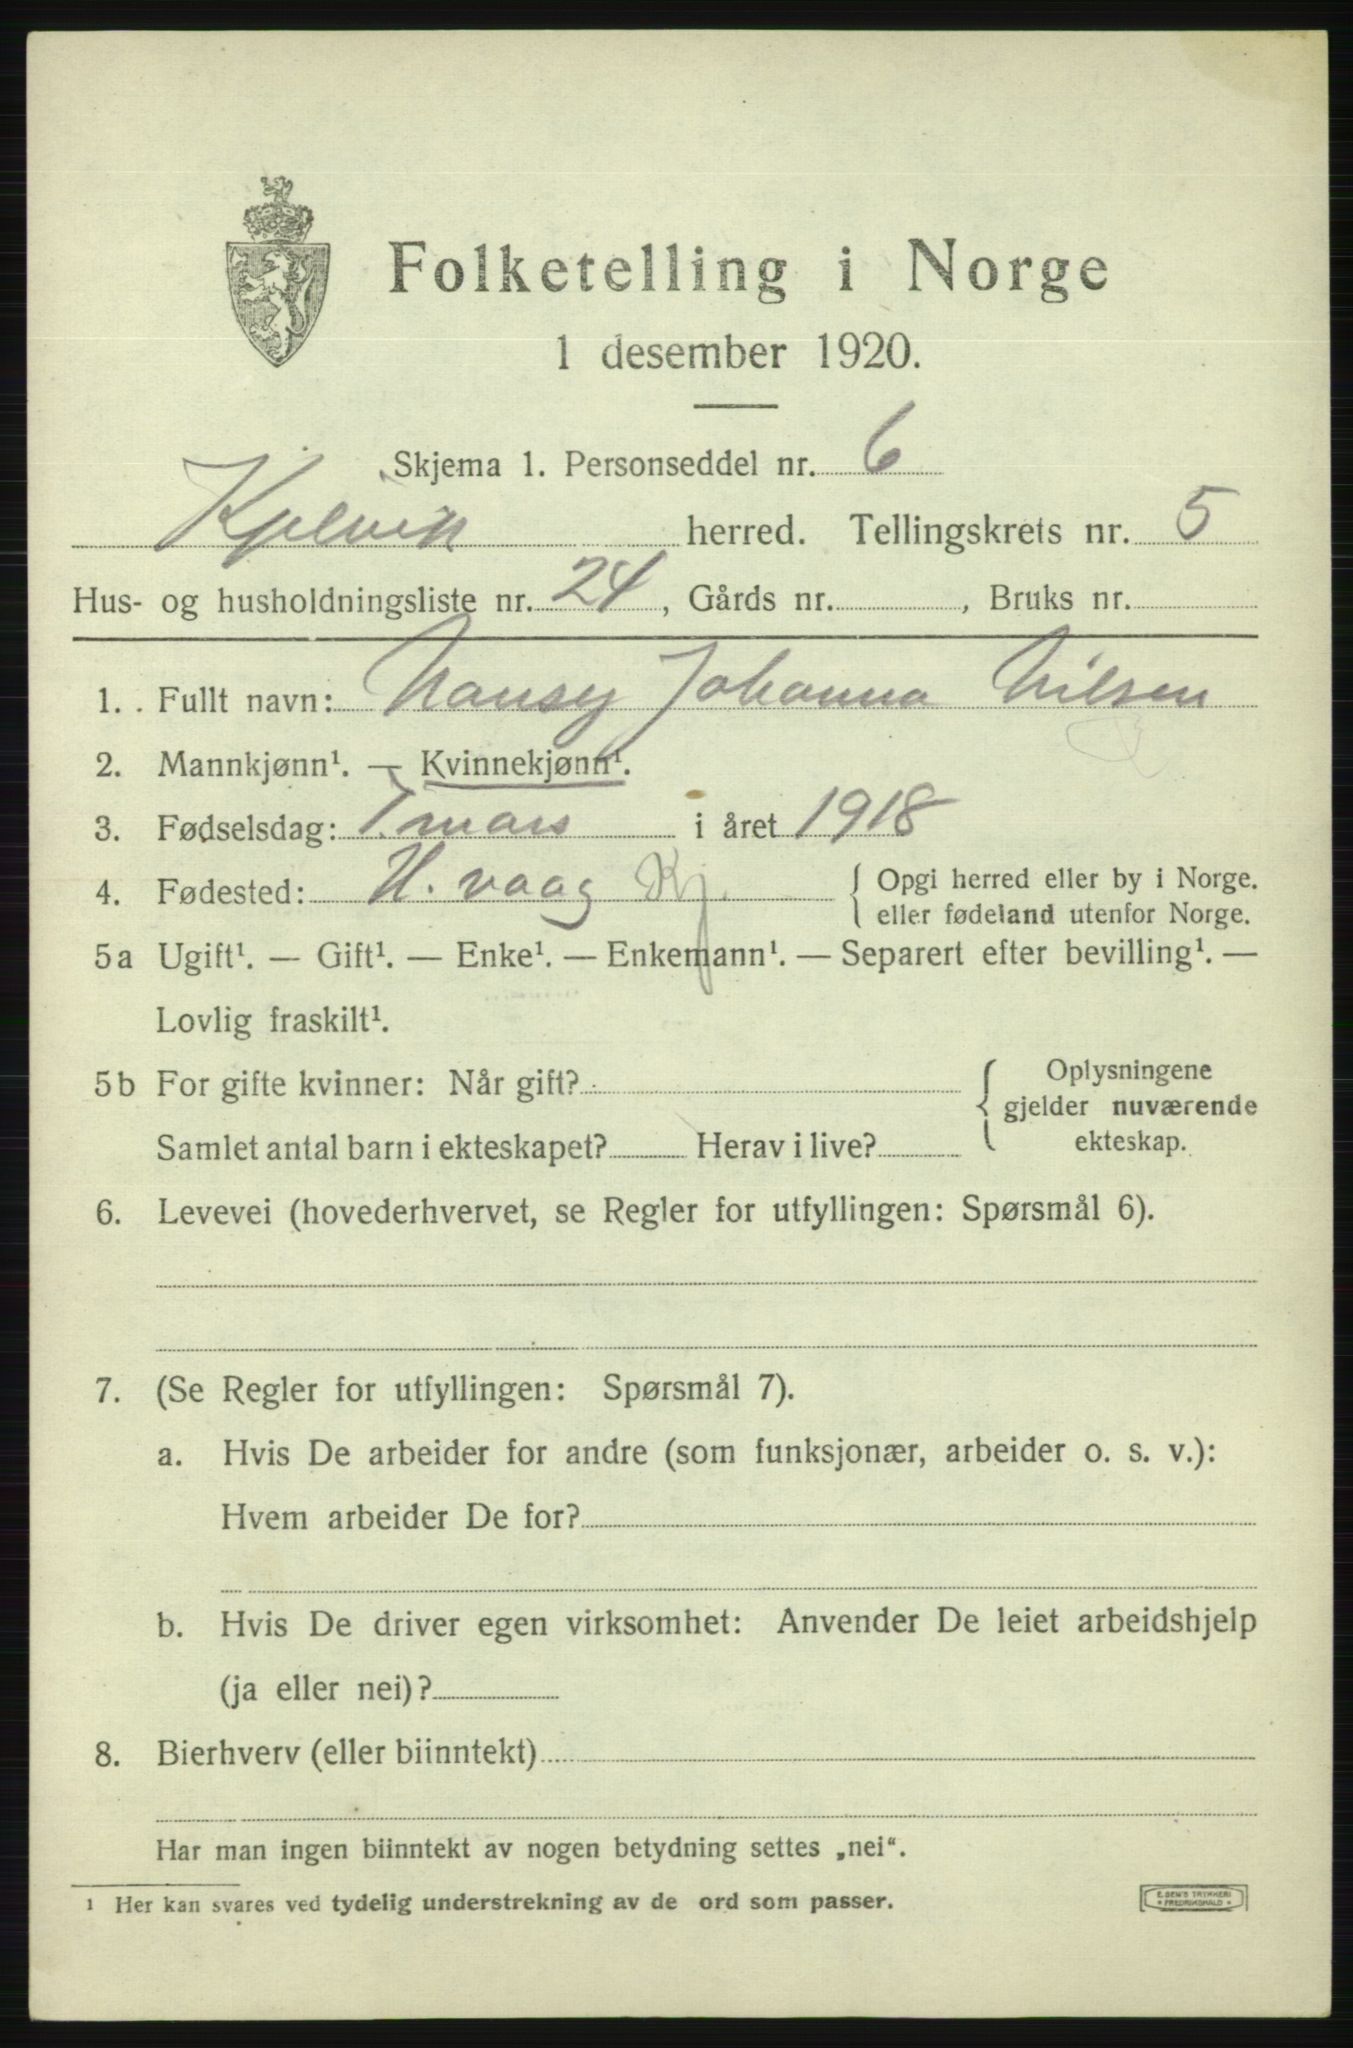 Folketelling i Norge
1 desember 1920.
Skjema 1. Personseddel nr. 6
Kjelvik herred. Tellingskrets nr. 5
Hus- og husholdningsliste nr. 24, Gårds nr. , Bruks nr.
1. Fullt navn: Nansy Johanna Nilsen
2. Mannkjønn¹. — Kvinnekjønn¹.
3. Fødselsdag: 7. mars i året 1918
4. Fødested: H. vaag Kj. { Opgi herred eller by i Norge.
eller fødeland utenfor Norge.
5a Ugift¹. — Gift¹. — Enke¹. — Enkemann¹. — Separert efter bevilling¹. —
Lovlig fraskilt¹.
5b For gifte kvinner: Når gift? { Oplysningene
gjelder nuværende
Samlet antal barn i ekteskapet? Herav i live? ekteskap.
6. Levevei (hovederhvervet, se Regler for utfyllingen: Spørsmål 6).
7. (Se Regler for utfyllingen: Spørsmål 7).
a. Hvis De arbeider for andre (som funksjonær, arbeider o. s. v.):
Hvem arbeider De for?
b. Hvis De driver egen virksomhet: Anvender De leiet arbeidshjelp
(ja eller nei)?
8. Bierhverv (eller biinntekt)
Har man ingen biinntekt av nogen betydning settes „nei“.
¹ Her kan svares ved tydelig understrekning av de ord som passer.
E. SEM'S TRYKKERI
FREDRIKSHALD